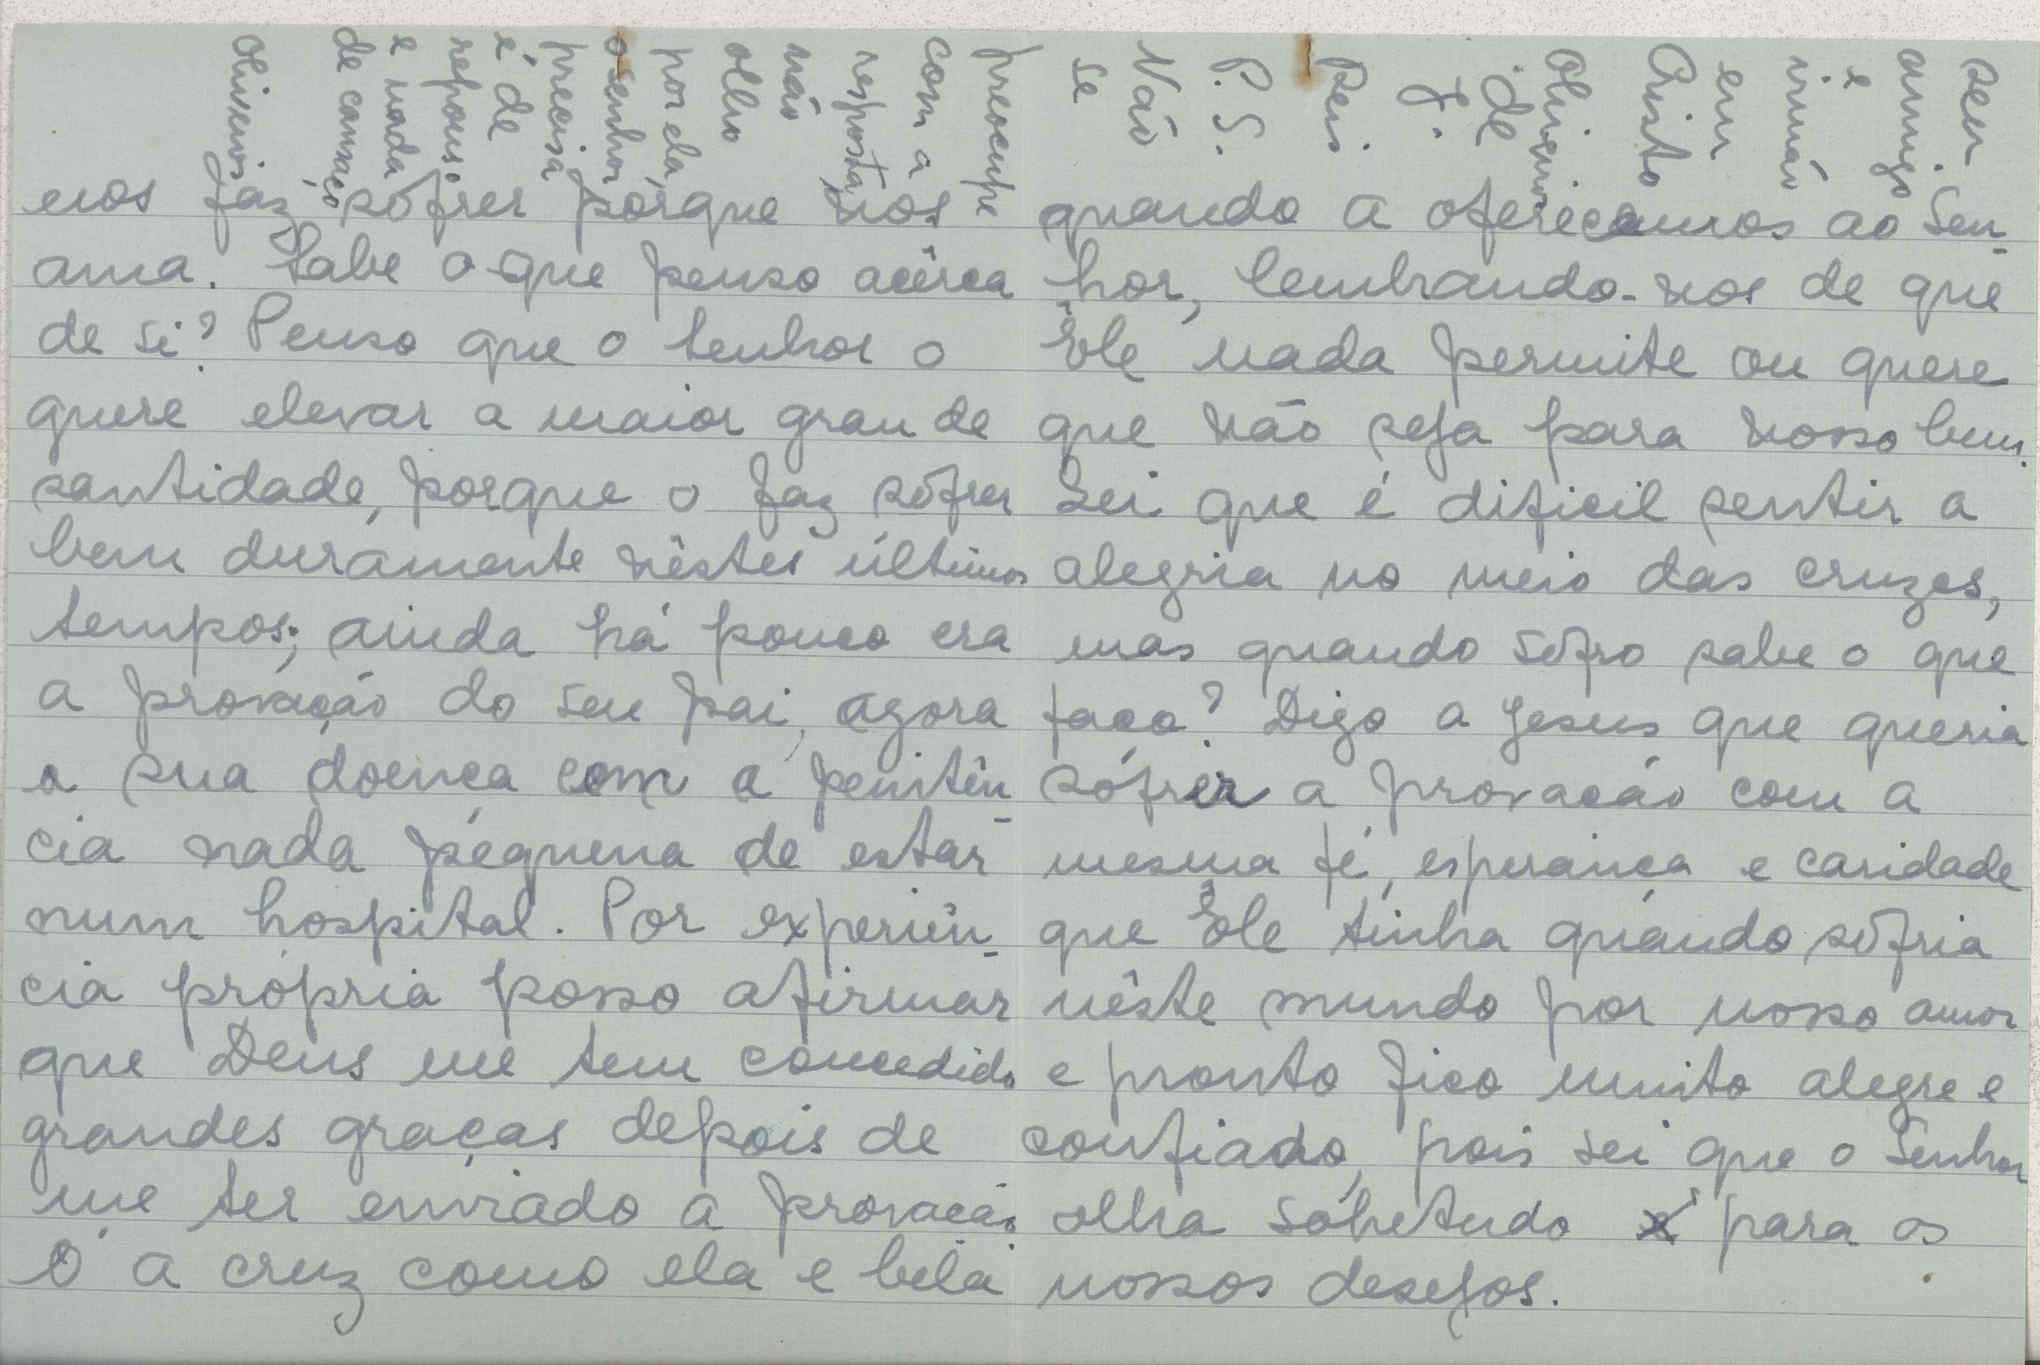 nos faz sôfrer pórque nos
ama. Sabe o que penso acêrca
de si? Penso que o Senhor o
quere elevar a maior grau de
santidade, porque o faz sôfrer
bem duramente nêstes últimos
tempos; ainda há pouco era
a provação do seu pai, agora
a sua doença com a penitên-
cia nada pequena de estar
num hospital. Por experiên-
cia própria posso afirmar
que Deus me tem concedido
grandes graças depois de
me ter enviado a provação
Ó a cruz como ela é bela
quando a oferecamos ao Sen-
hor, lembrando-nos de que
Êle nada permite ou quere
que não seja para nosso bem.
Sei que é dificil sentir a
alegria no meio das cruzes,
mas quando sôfro sabe o que
faço? Digo a Jesus que queria
sófrer a provação com a
mesma fé, esperança e caridade
que Êle tinha quando sôfria
nêste mundo por nosso amor
e pronto fico muito alegre e
confiado, pois sei que o Senhor
olha sóbretudo para os
nossos desejos.
Seu
amigo
e
irmão
em
Cristo
Oliveiros
de
J.
Reis.
P.S.
Não
se
preocupe
com a
resposta
não
olho
por ela
o senhor
precisa
é de
repouso
e nada
de cansaço
Oliveiros